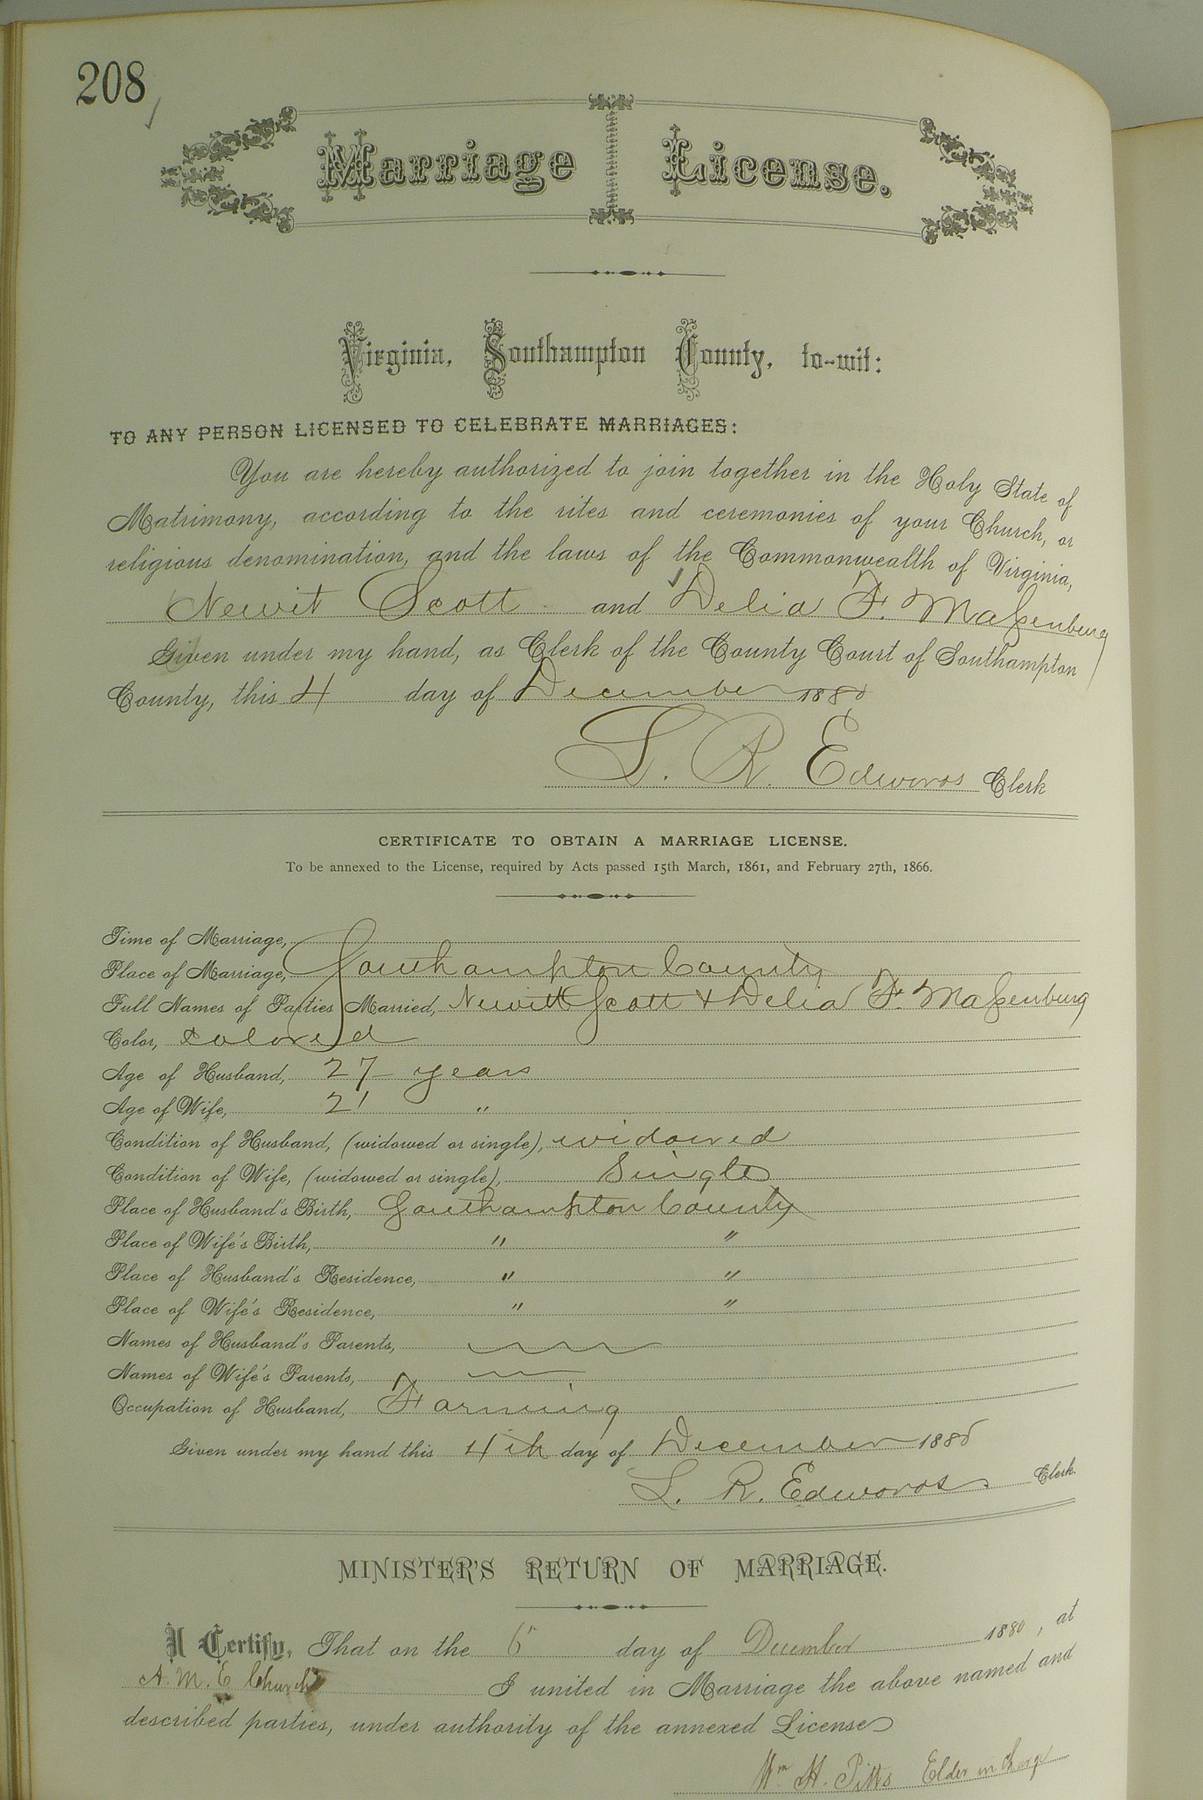 208
Marriage License.
Virginia, Southampton County, to-wit:
TO ANY PERSON LICENSED TO CELEBRATE MARRIAGES:
You are hereby authorized to join together in the Holy State of
Matrimony, according to the rites and ceremonies of your Church, or
religious denomination, and the laws of the Commonwealth of Virginia,
Newit Scott and Delia F. Massenburg
Given under my hand, as Clerk of the County Court of Southampton
County, this 4 day of December 1880
L. R. Edwards Clerk
CERTIFICATE TO OBTAIN A MARRIAGE LICENSE.
To be annexed to the License, required by Acts passed 15th March, 1861, and February 27th, 1866.
Time of Marriage,
Place of Marriage, Southampton County
Full Names of Parties Married, Newitt Scott & Delia F. Massenburg
Color, Colored
Age of Husband, 27 years
Age of Wife, 21 "
Condition of Husband, (widowed or single), widowed
Condition of Wife, (widowed or single), Single
Place of Husband's Birth, Southampton County
Place of Wife's Birth, " "
Place of Husband's Residence, " "
Place of Wife's Residence, " "
Names of Husband's Parents,
Names of Wife's Parents,
Occupation of Husband, Farming
Given under my hand this 4th day of December 1880
L. R. Edwards Clerk.
MINISTER'S RETURN OF MARRIAGE.
I Certify, That on the 6" day of December 1880, at
A. M. E Church I united in Marriage the above named and
described parties, under authority of the annexed License
Wm H. Pitts Elder in charge